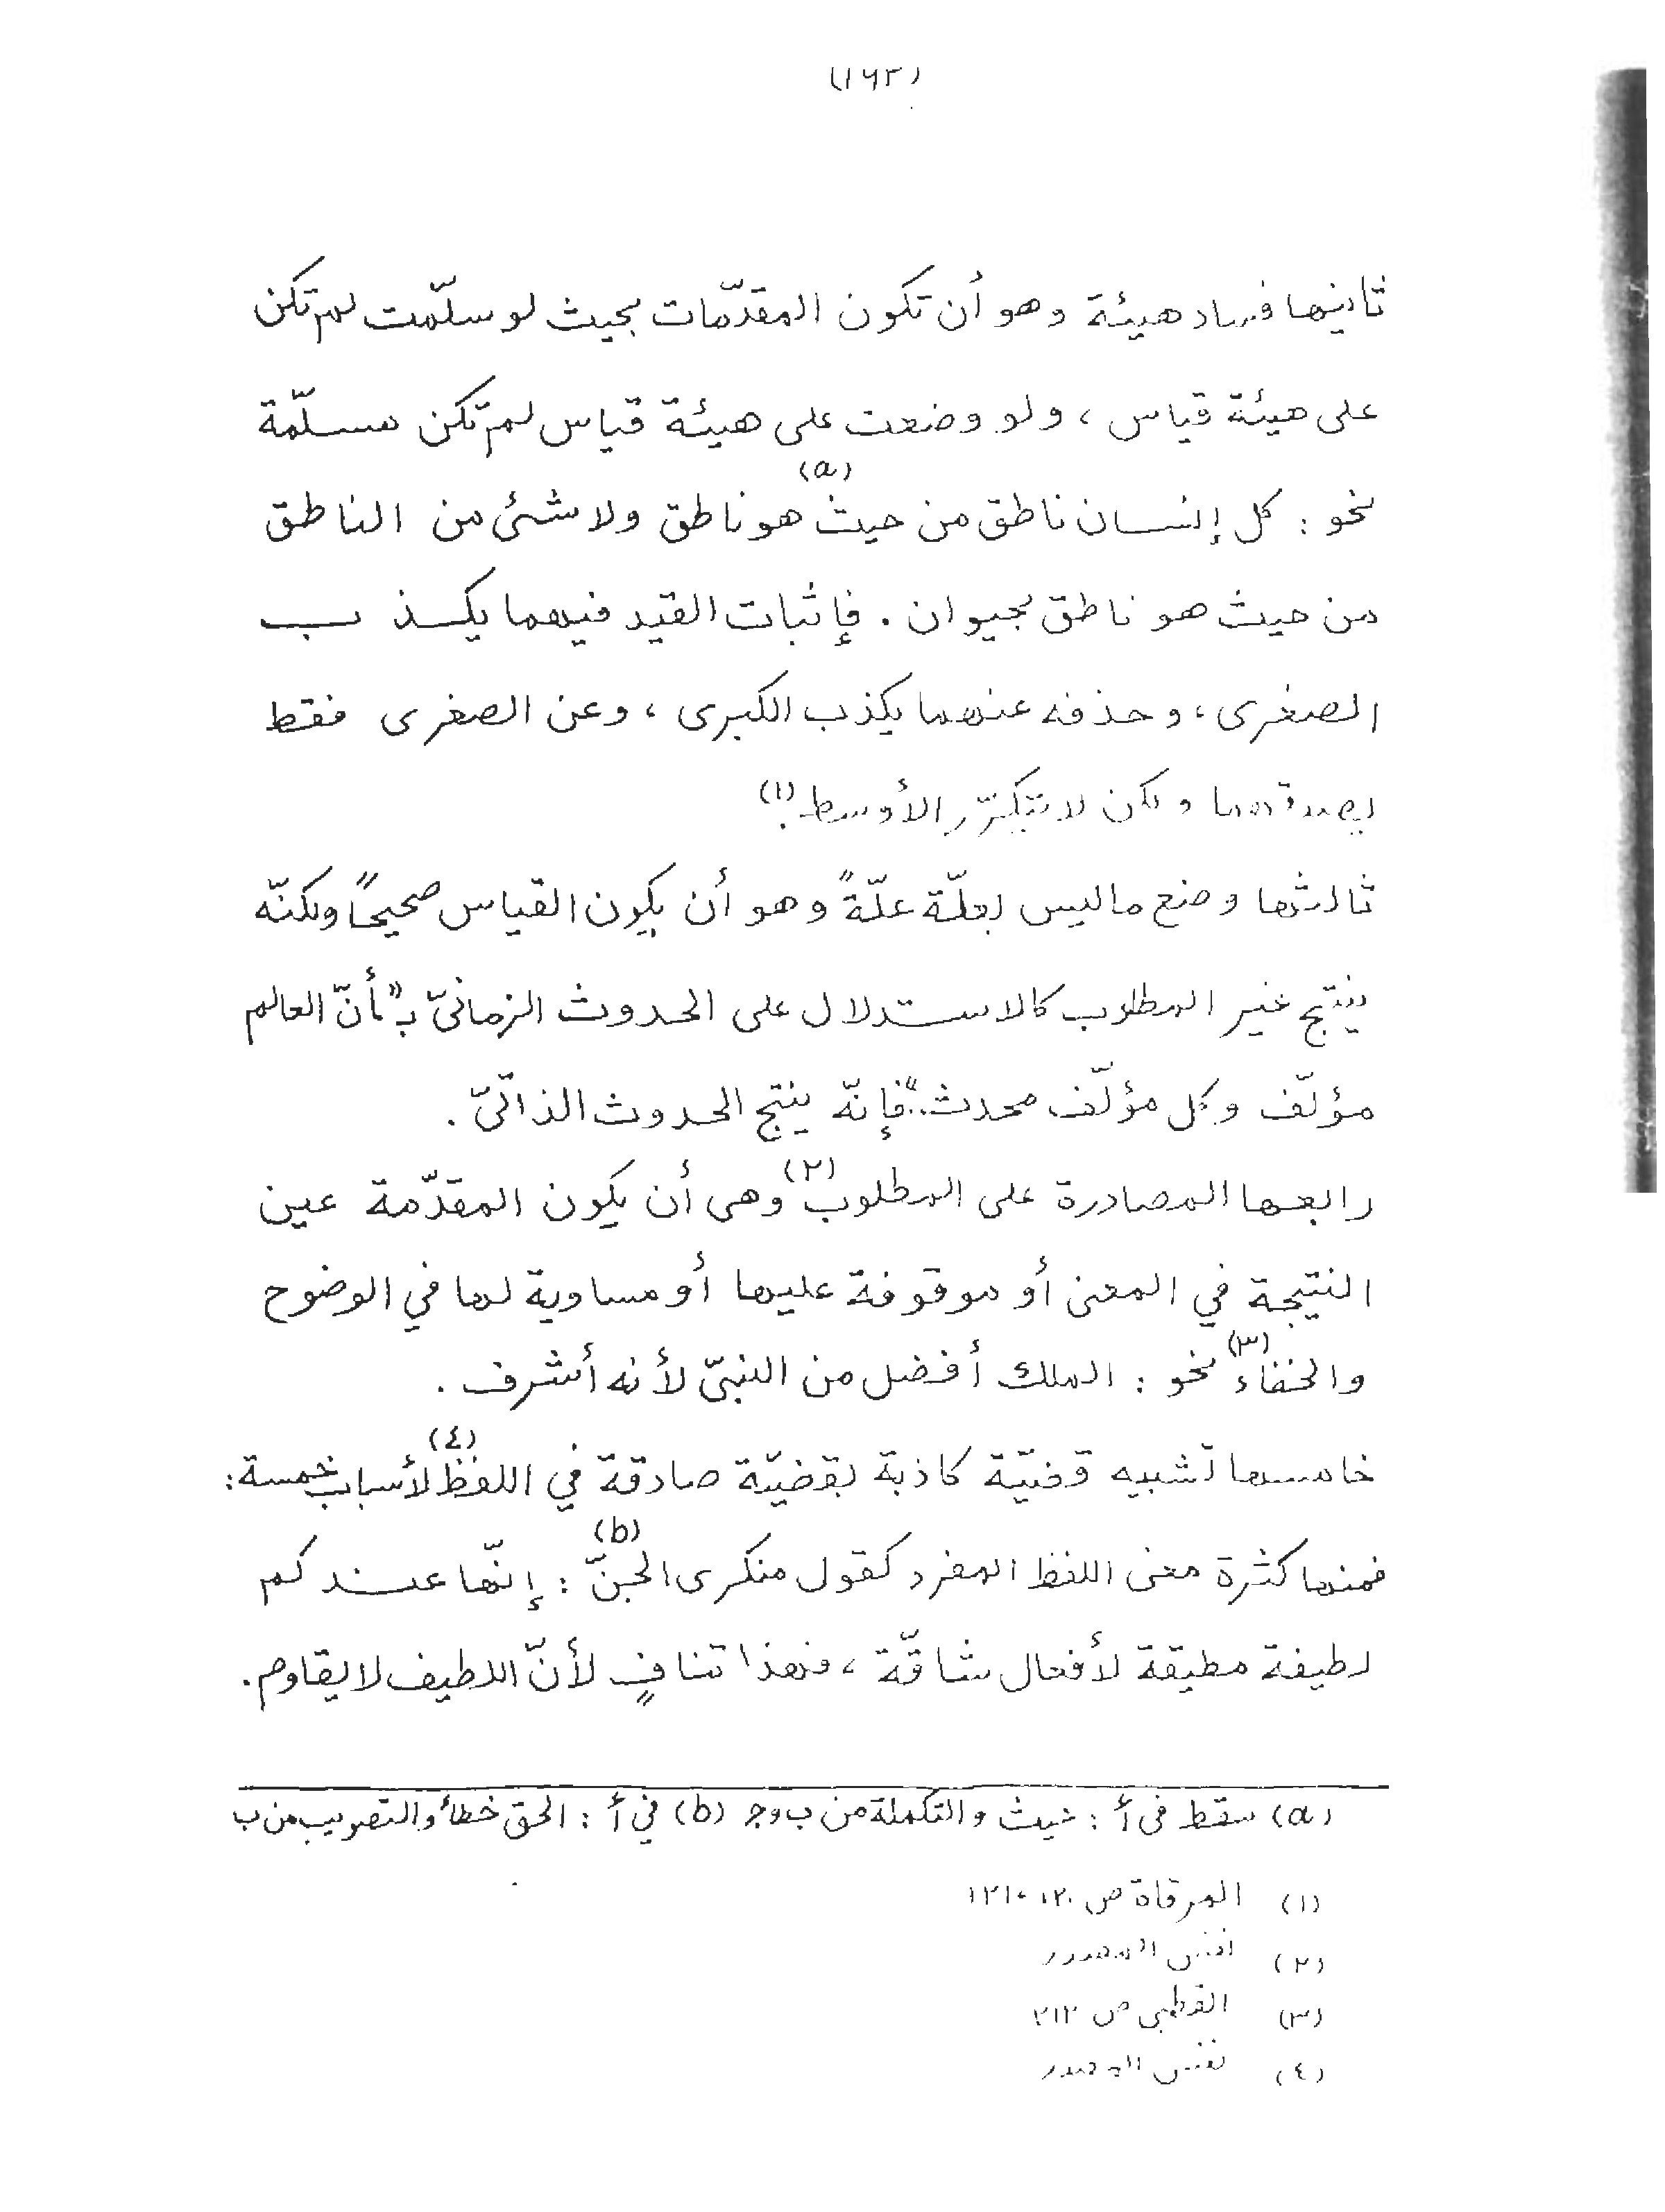 (١٦٣)
ثانيها فساد هيئة وهو أن تكون المقدّمات بحيث لو سلّمت لم تكن
على هيئة قياس ، ولو وضعت على هيئة قياس لم تكن مسلّمة
نحو : كل إنسان ناطق من حيث (a) هو ناطق ولا شئ من الناطق
من حيث هو ناطق بحيوان . فإثبات القيد فيهما يكذب
الصغرى ، وحذفه عنهما يكذب الكبرى ، وعن الصغرى فقط
يصدقهما ولكن لا يتكرّر الأوسط . (١)
ثالثها وضع ما ليس بعلّة علّةً وهو أن يكون القياس صحيحاً ولكنّه
ينتج غير المطلوب كالاستدلال على الحدوث الزمانيّ بـ "أنّ العالم
مؤلّف وكل مؤلّف محدث .." فإنّه ينتج الحدوث الذاتيّ .
رابعها المصادرة على المطلوب (٢) وهى أن يكون المقدّمة عين
النتيجة في المعنى أو موقوفة عليها أو مساوية لها في الوضوح
والخفاء (٣) نحو : الملك أفضل من النبيّ لأنه أشرف .
خامسها تشبيه قضيّة كاذبة بقضيّة صادقة في اللفظ (٤) لأسباب خمسة :
فمنها كثرة معنى اللفظ المفرد كقول منكرى الجنّ (b) : إنّها عندكم
لطيفة مطيقة لأفعال شاقّة ، فهذا تنافٍ لأنّ اللطيف لا يقاوم .
(a) سقط فى أ : حيث والتكملة من ب وج (b) في أ : الحق خطأ والتصويب من ب
(١) المرقاة ص ١٢٠ ، ١٢١
(٢) نفس المصدر
(٣) القطبى ص ٢١٢
(٤) نفس المصدر